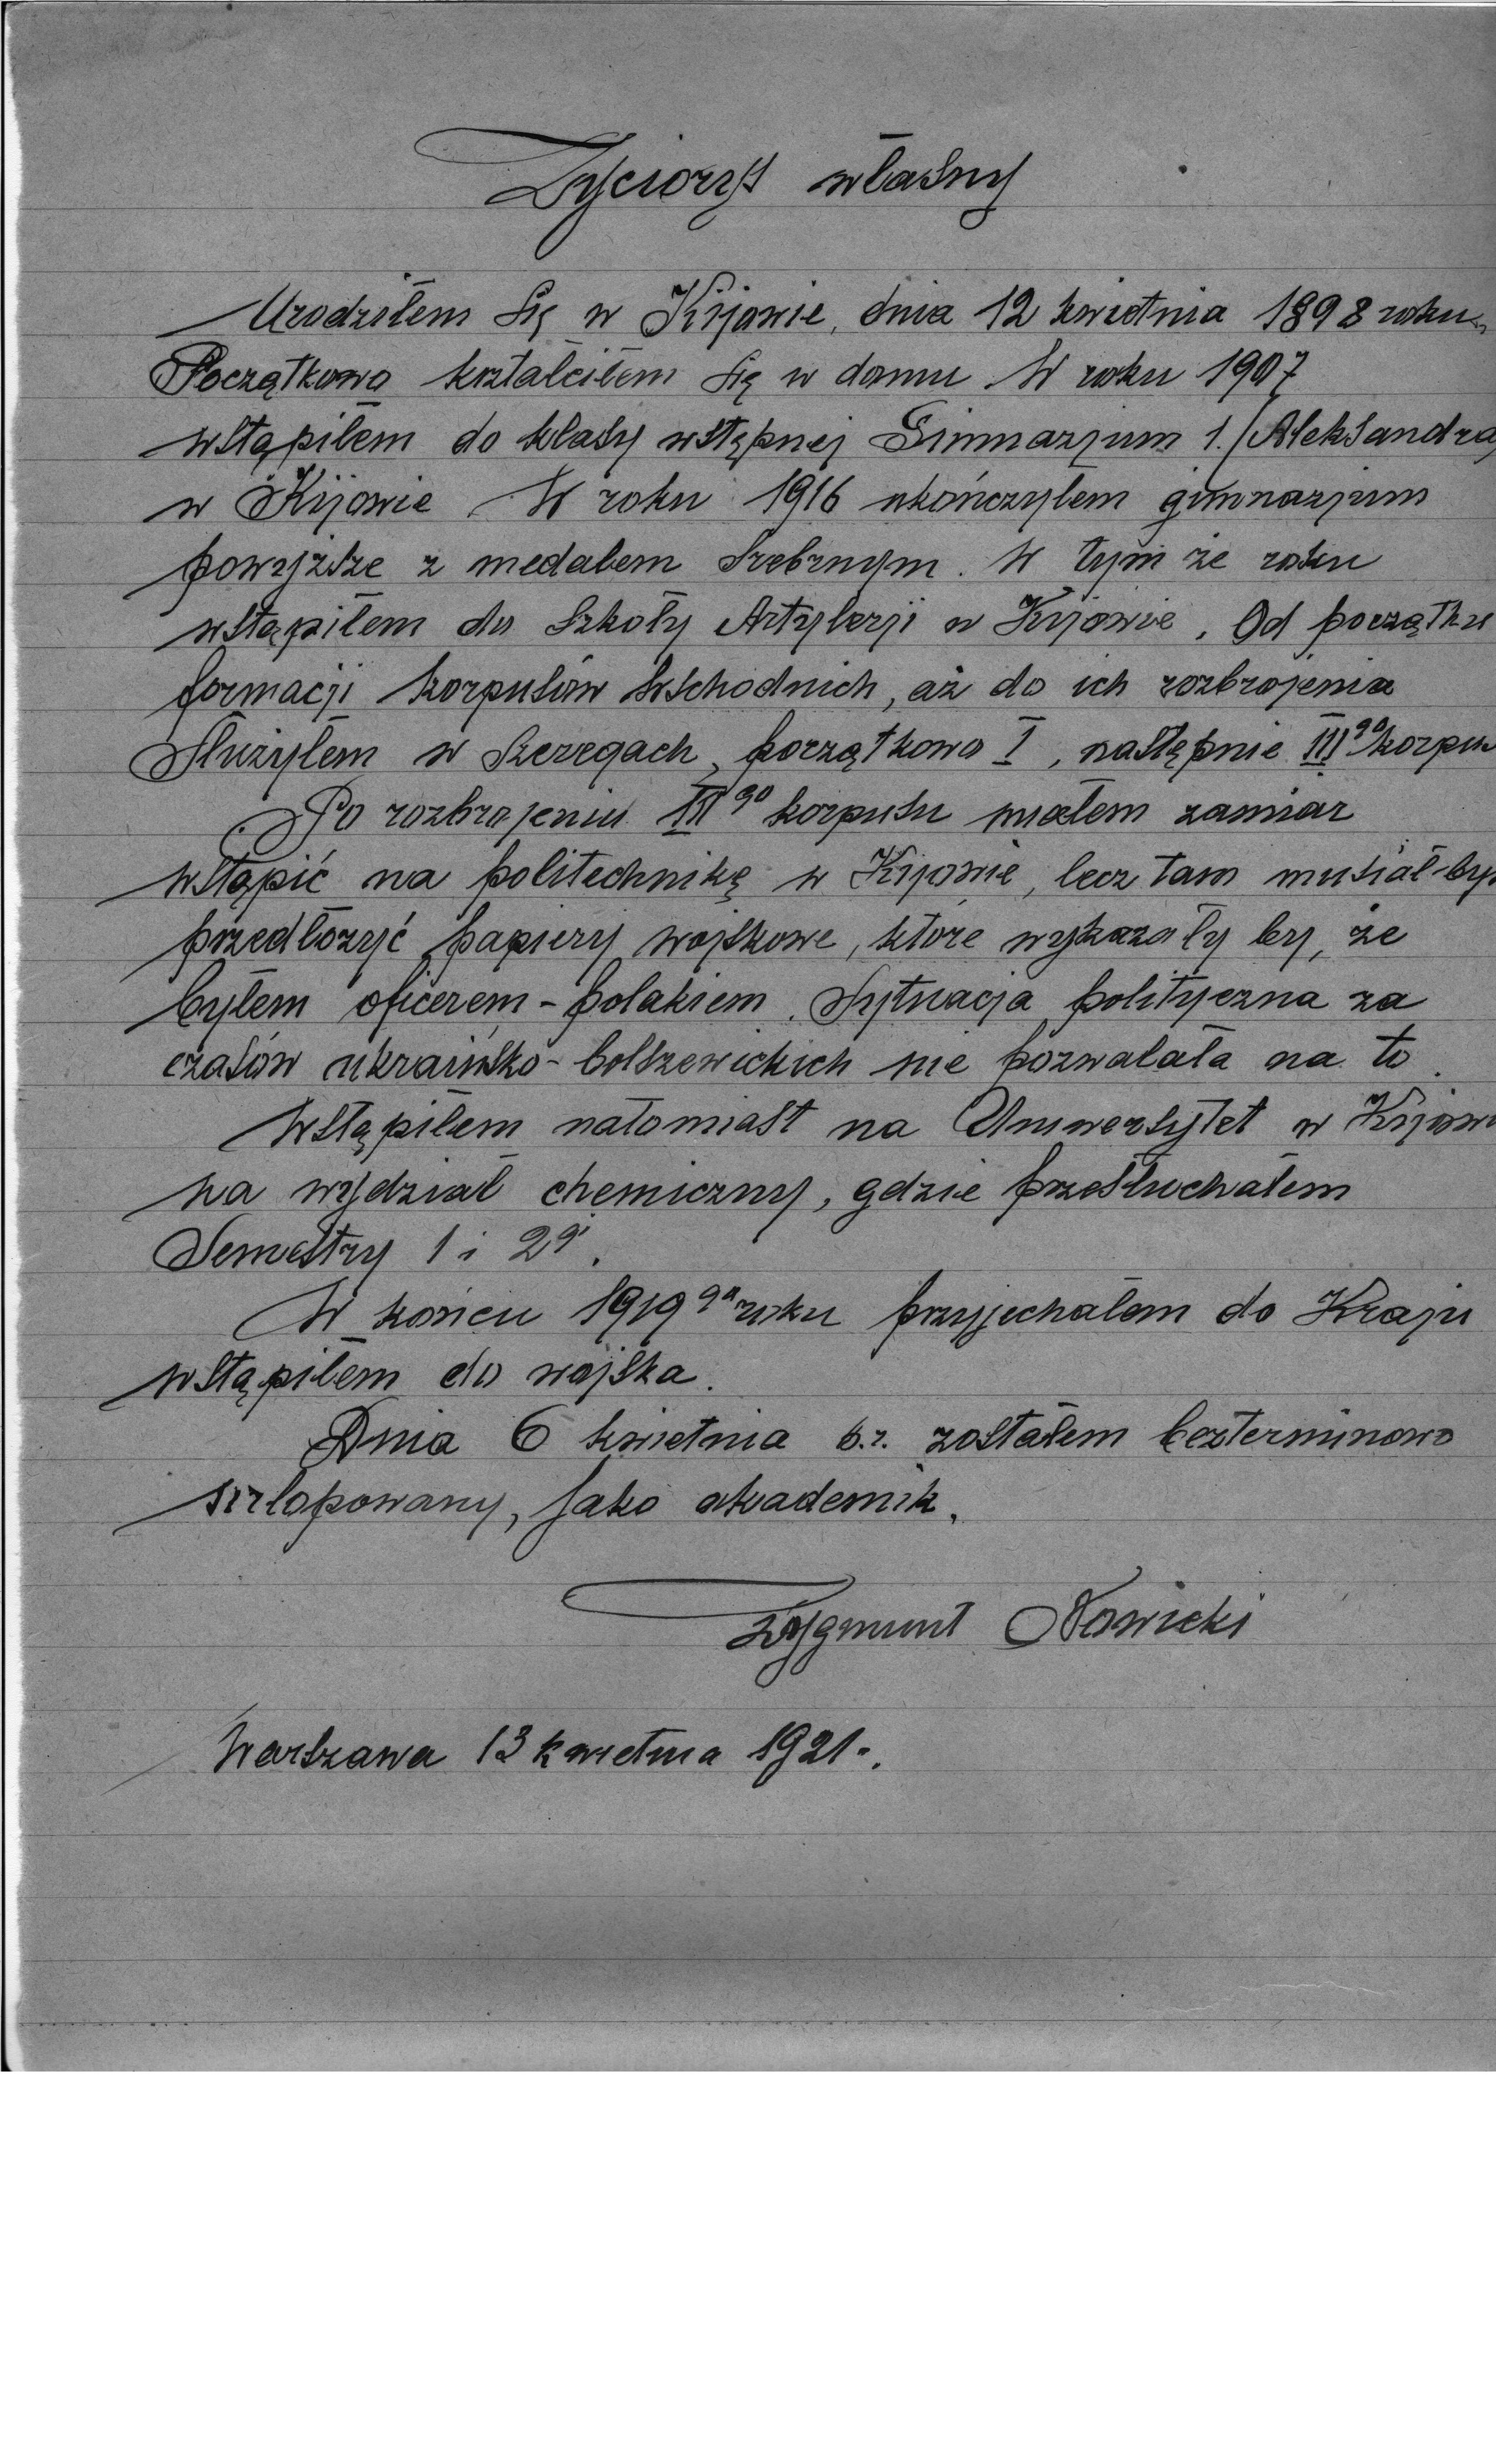 Życiorys własny
Urodziłem się w Kijowie, dnia 12 kwietnia 1898 roku.
Początkowo kształciłem się w domu. W roku 1907
wstąpiłem do klasy wstępnej Gimnazjum 1. /Aleksandra/
w Kijowie. W roku 1916 ukończyłem gimnazjum
powyższe z medalem srebrnym. W tym że roku
wstąpiłem do Szkoły Artylerji w Kijowie. Od początku
formacji korpusów Wschodnich, aż do ich rozbrojenia
służyłem w szeregach, początkowo I, następnie III go korpu
Po rozbrojeniu III go korpusu miałem zamiar
wstąpić na politechnikę w Kijowie, lecz tam musiał-by
przedłożyć papiery wojskowe, które wykazały by, że
byłem oficerem-polakiem. Sytuacja polityczna za
czasów ukraińsko-bolszewickich nie pozwalała na to.
Wstąpiłem natomiast na Uniwersytet w Kijowi
na wydział chemiczny, gdzie przesłuchałem
Semestry 1 i 2gi.
W końcu 1919 go roku przyjechałem do Kraju
wstąpiłem do wojska.
Dnia 6 kwietnia b.r. zostałem bezterminowo
urlopowany, jako akademik.
Zygmunt Nowicki
Warszawa 13 kwietnia 1921.